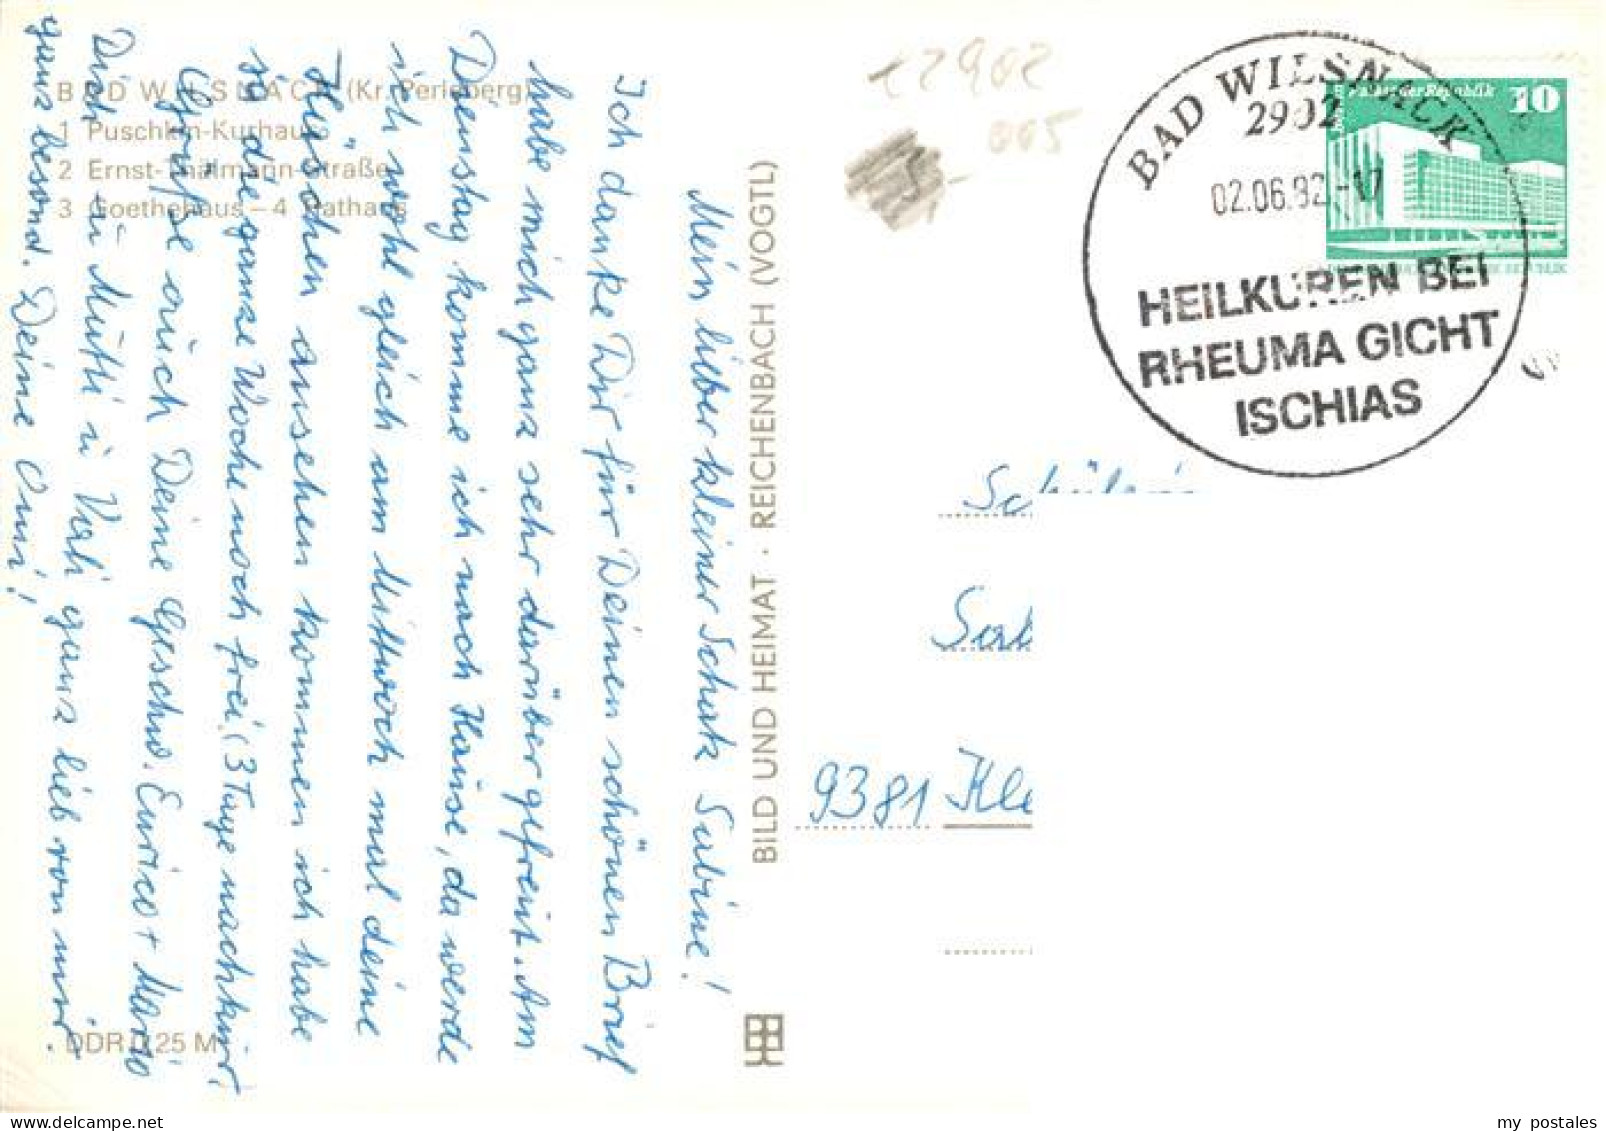 BAD WILSNACK (Kr. Perleberg)
1 Puschkin-Kurhaus
2 Ernst-Thälmann-Straße
3 Goethehaus – 4 Rathaus
Mein lieber kleiner Schatz Sabine!
Ich danke Dir für Deinen schönen Brief
habe mich ganz sehr darüber gefreut. Am
Dienstag komme ich nach Hause, da werde
ich wohl gleich am Mittwoch mal deine
"Häschen ansehen kommen ich habe
so die ganze Woche noch frei. (3 Tage nachkur.
Grüße auch Deine Geschw. Enrico + Mario
Dich u Mutti u Vati ganz lieb von mir.
ganz besond. Deine Omi!
DDR 0,25 M
BILD UND HEIMAT · REICHENBACH (VOGTL)
12902
005
BAD WILSNACK
2902
02.06.82.-17
HEILKUREN BEI
RHEUMA GICHT
ISCHIAS
Palast der Republik 10
Schülerin
Sab
9381 Kle
my postales